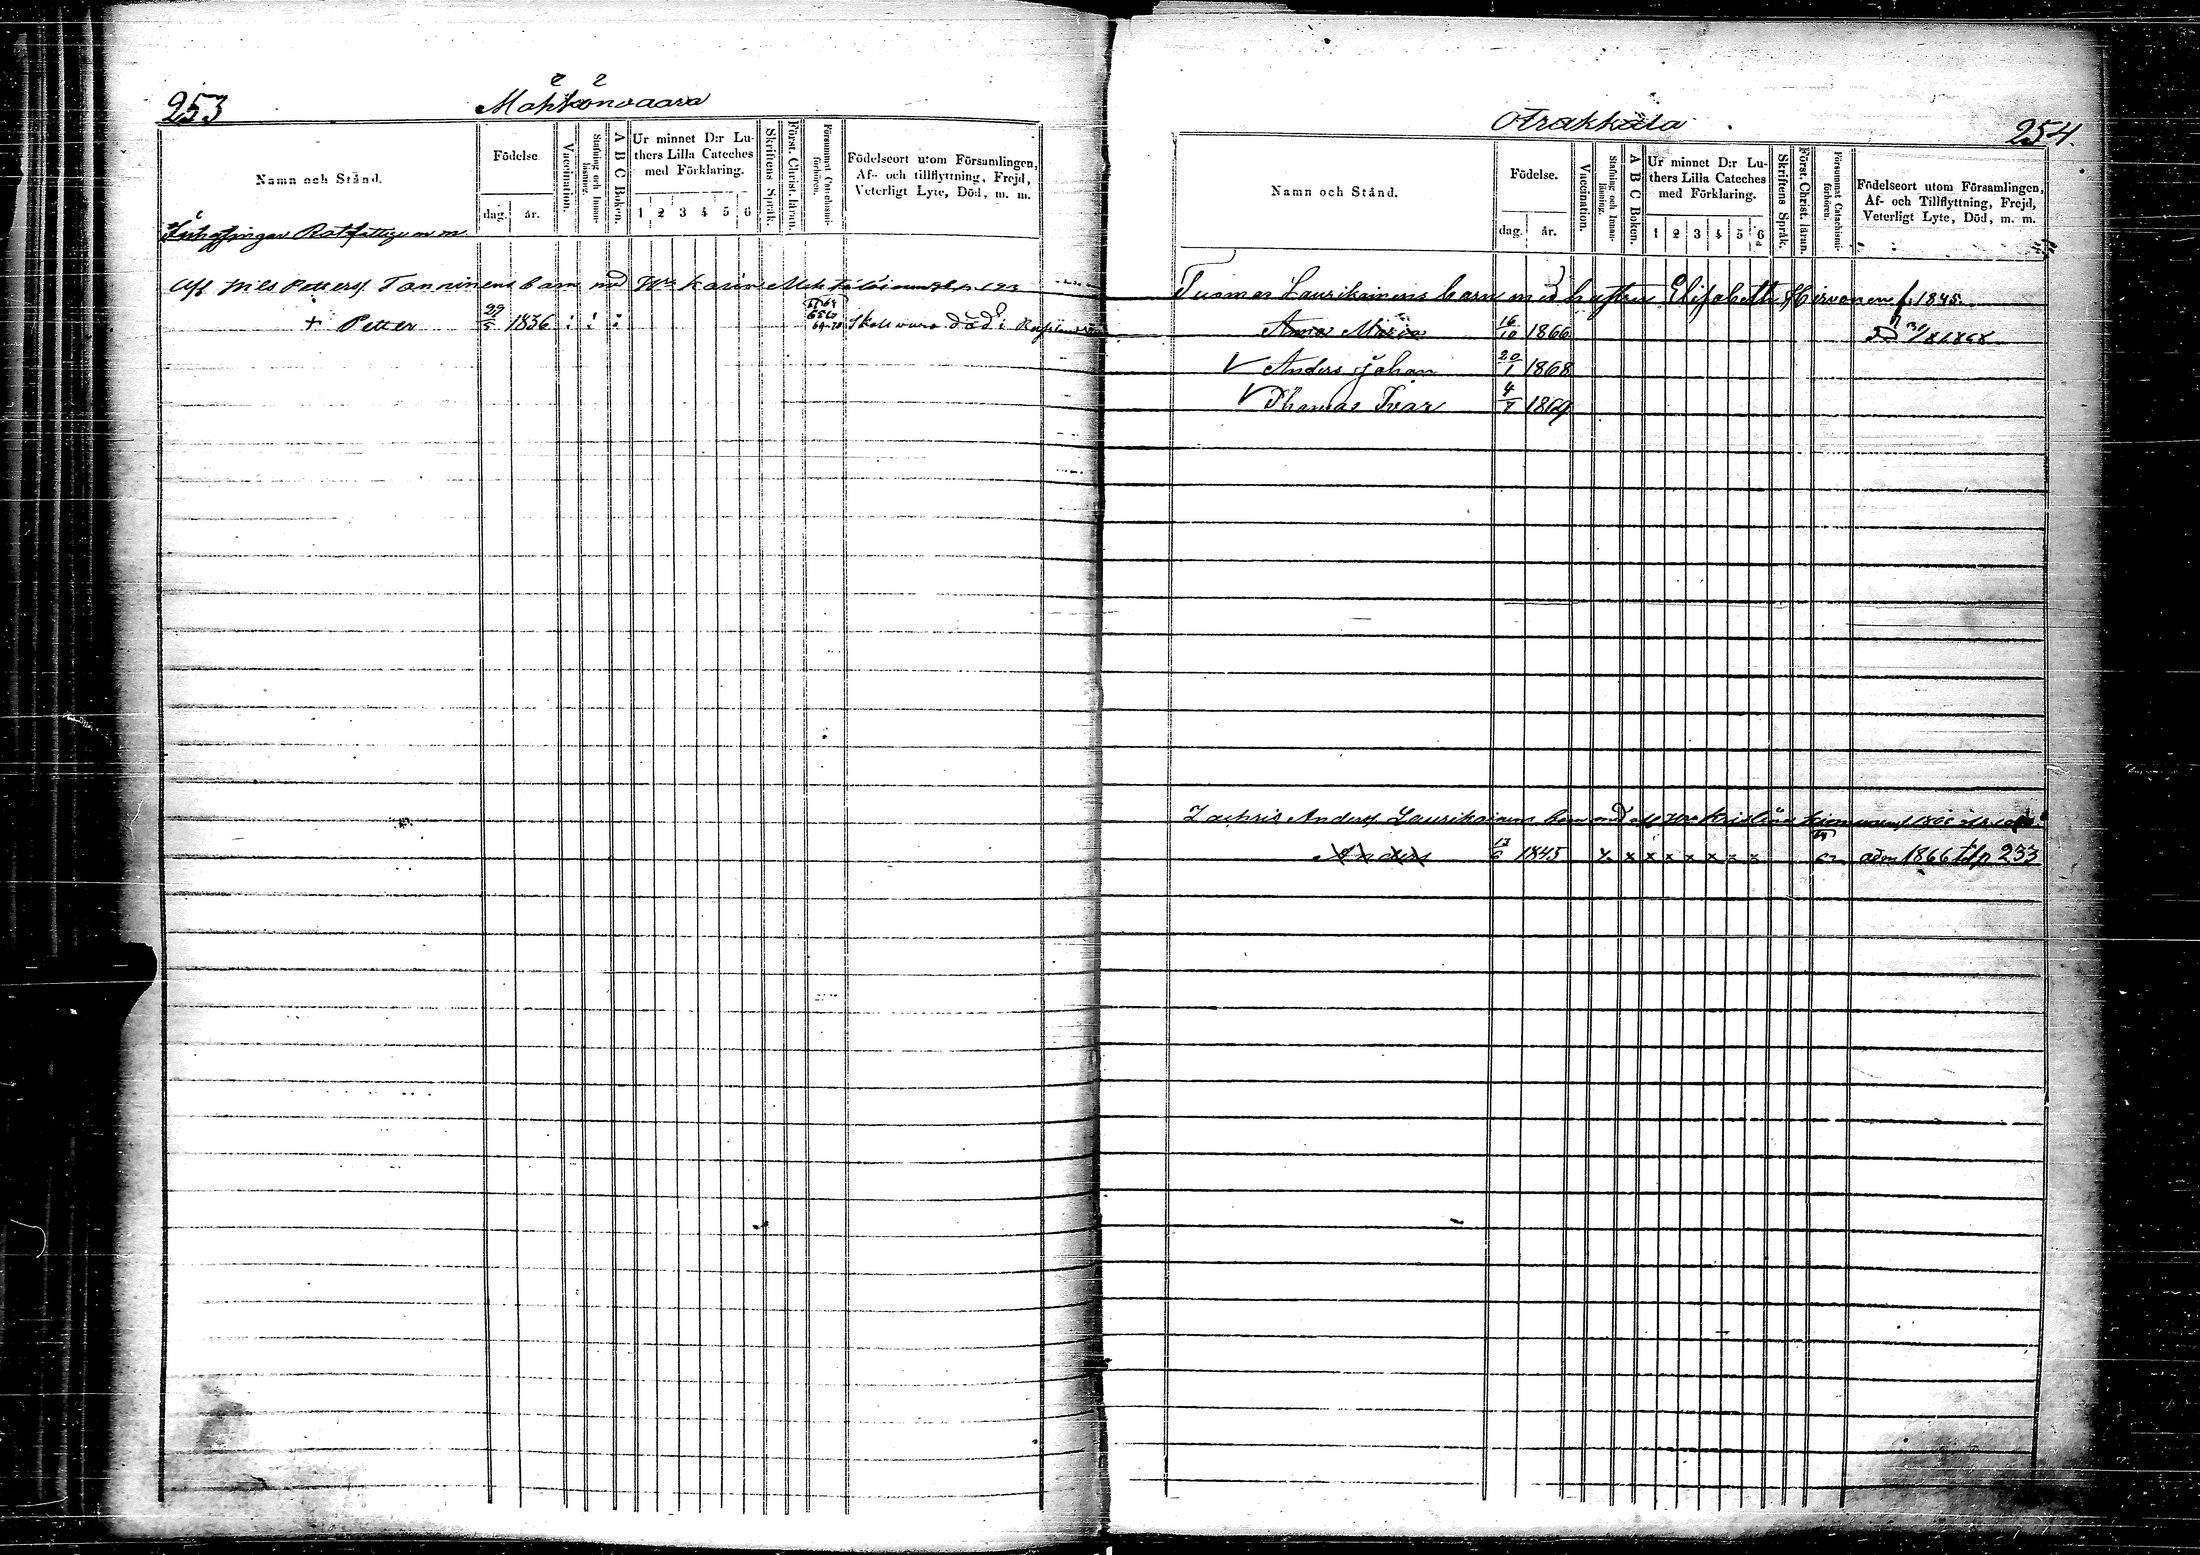 253
Mähkönvaara
Namn och Stånd.
Födelse
dag. år.
Vaccination.
Stafning och Innan-läsning.
A B C Boken.
Ur minnet D:r Lu-
thers Lilla Cateches
med Förklaring.
1 2 3 4 5 6
Skriftens Språk.
Först. Christ. läran.
Försummat Catechismi-förhören.
Födelseort utom Församlingen,
Af- och tillflyttning, Frejd,
Veterligt Lyte, Död, m. m.
Inhysingar Rotfattige m m
Af Nils Petters Tanninens barn med Karin
+ Petter 29/5 1836 död i
254.
Namn och Stånd.
Födelse.
dag. år.
Vaccination.
Stafning och Innan-läsning.
A B C Boken.
Ur minnet D:r Lu-
thers Lilla Cateches
med Förklaring.
1 2 3 4 5 6
Skriftens Språk.
Först. Christ. läran.
Försummat Catechismi-förhören.
Födelseort utom Församlingen,
Af- och Tillflyttning, Frejd,
Veterligt Lyte, Död, m. m.
Tuomas Laurikainens barn med hustru Elisabeth Hirvonen f. 1845
Anna Maria 16/10 1866
Anders Johan 20/1 1868
Thomas Ivar 4/7 1869
Zachris Anders Laurikainens barn med Kristina
Anders 1843 x x x x x x x x 1866 233